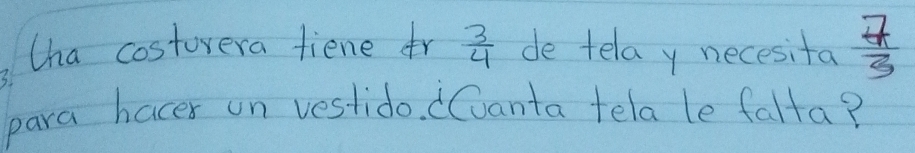 3. Una costurera tiene 3/4 de tela y necesita 7/3
para hacer un vestido. ¿Cuanta tela le falta?